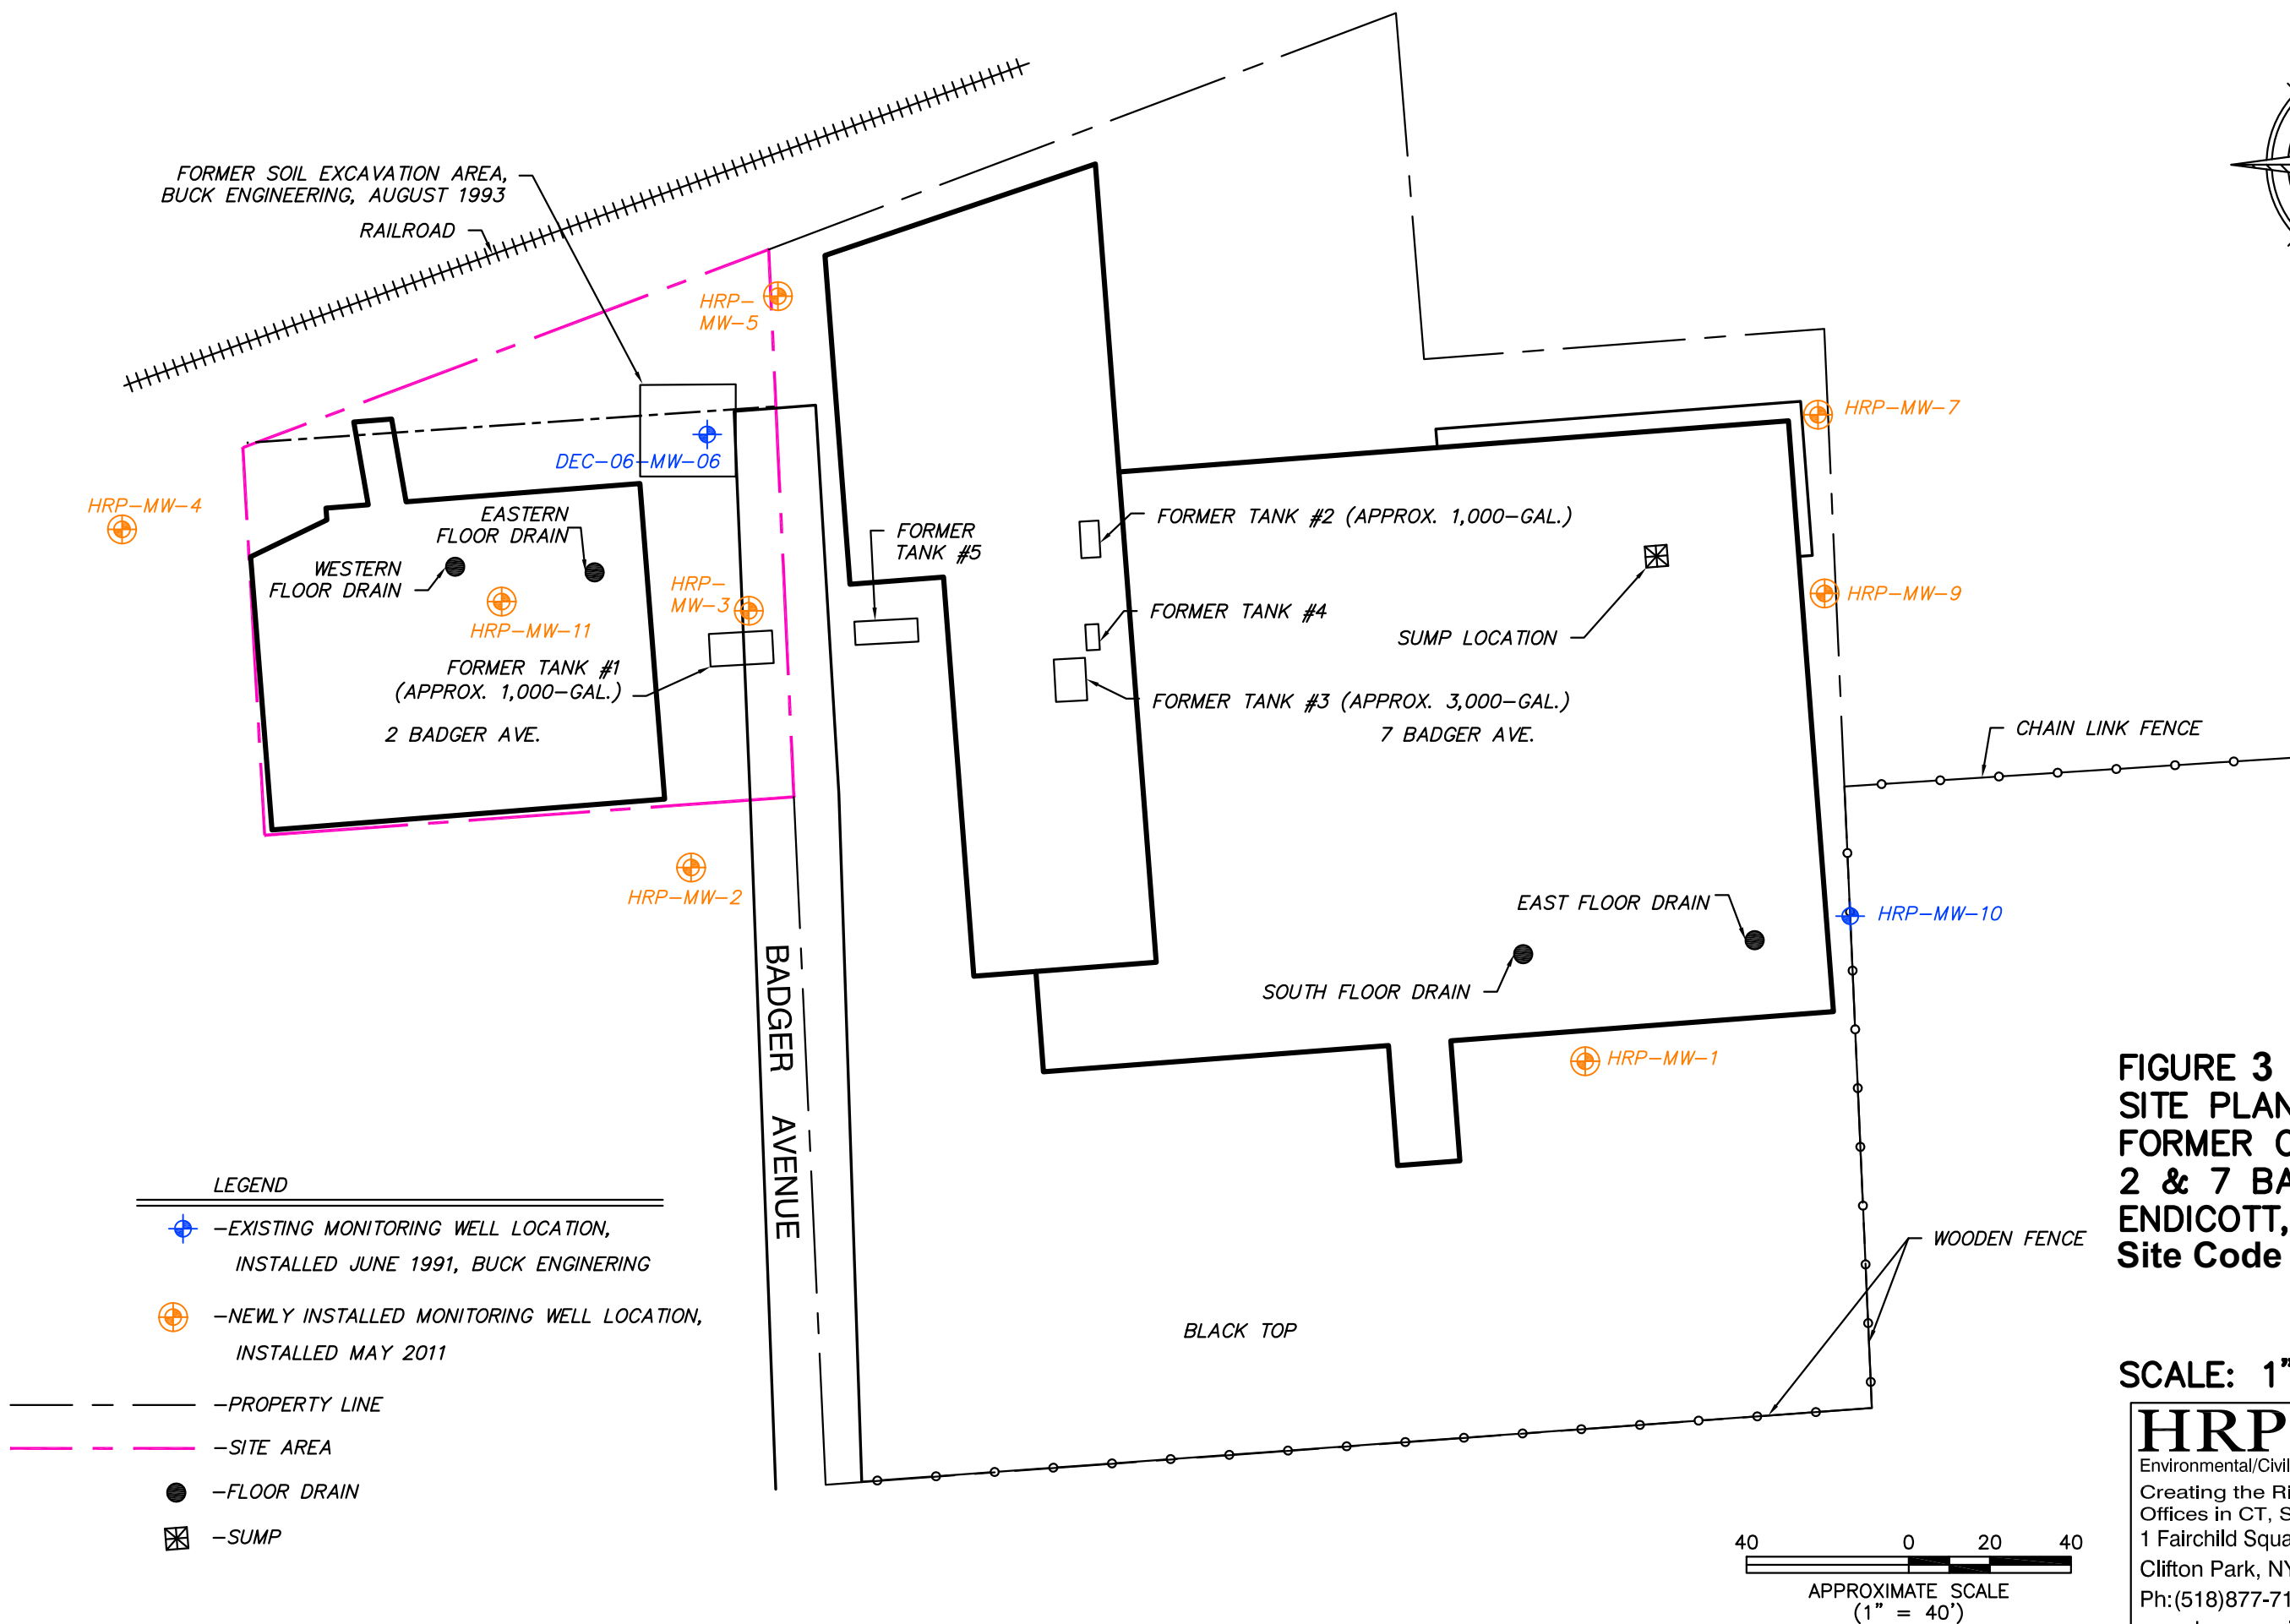 FORMER SOIL EXCAVATION AREA,
BUCK ENGINEERING, AUGUST 1993
RAILROAD
HRP-
MW-5
HRP-MW-7
DEC-06-MW-06
HRP-MW-4
EASTERN
FLOOR DRAIN
WESTERN
FLOOR DRAIN
HRP-MW-11
HRP-
MW-3
FORMER
TANK #5
FORMER TANK #2 (APPROX. 1,000-GAL.)
FORMER TANK #4
SUMP LOCATION
HRP-MW-9
FORMER TANK #1
(APPROX. 1,000-GAL.)
FORMER TANK #3 (APPROX. 3,000-GAL.)
2 BADGER AVE.
7 BADGER AVE.
CHAIN LINK FENCE
HRP-MW-2
EAST FLOOR DRAIN
HRP-MW-10
SOUTH FLOOR DRAIN
HRP-MW-1
BADGER AVENUE
WOODEN FENCE
BLACK TOP
LEGEND
-EXISTING MONITORING WELL LOCATION,
INSTALLED JUNE 1991, BUCK ENGINERING
-NEWLY INSTALLED MONITORING WELL LOCATION,
INSTALLED MAY 2011
-PROPERTY LINE
-SITE AREA
-FLOOR DRAIN
-SUMP
FIGURE 3
SITE PLAN
FORMER
2 & 7
ENDICOTT,
Site Code
SCALE: 1"
HRP
Environmental/Civil
Creating the
Offices in CT,
1 Fairchild
Clifton Park, NY
Ph:(518)877-71
40 0 20 40
APPROXIMATE SCALE
(1" = 40')